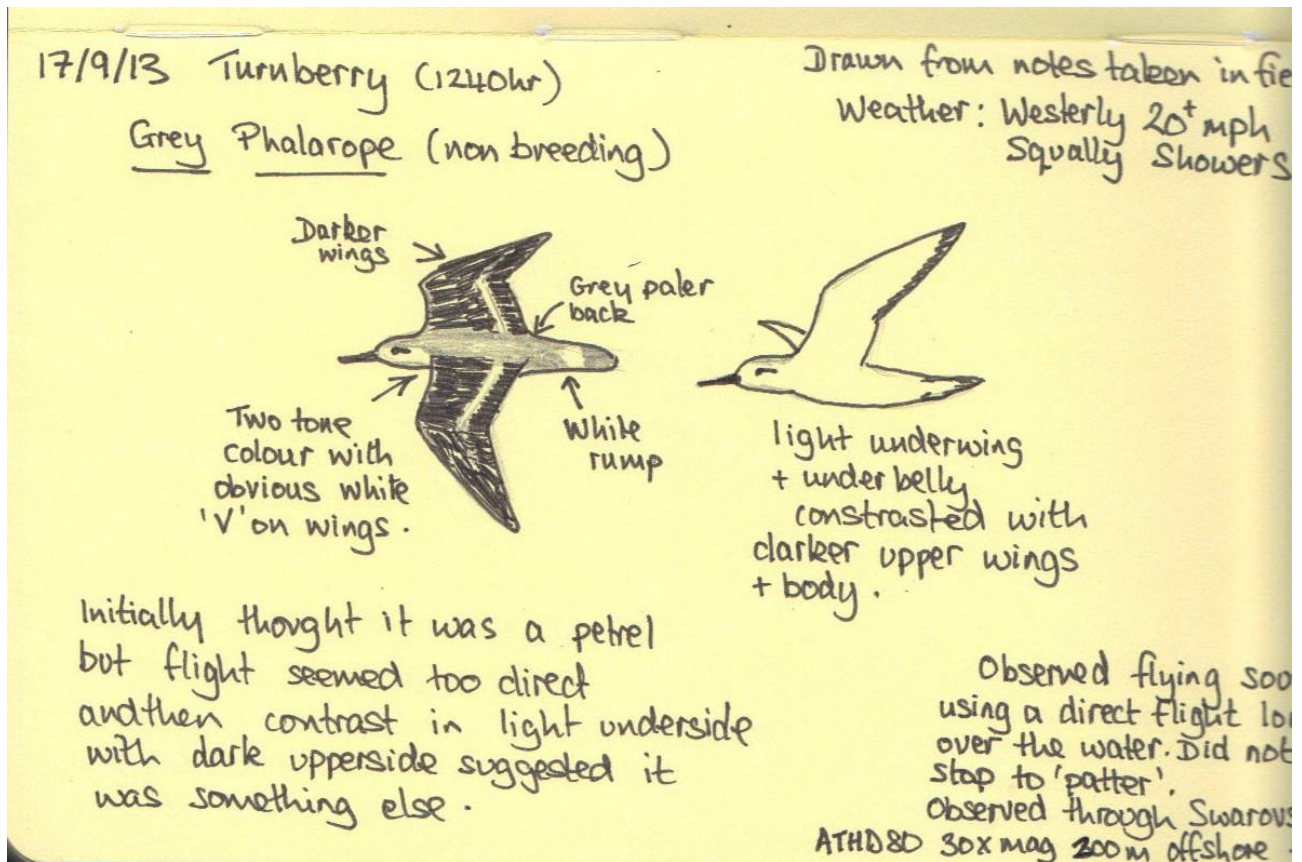 17/9/13 Turnberry (1240hr)
Grey Phalarope (non breeding)
Drawn from notes taken in fie
Weather: Westerly 20+ mph
Squally Showers
Darker
wings
Grey paler
back
Two tone
colour with
obvious white
'V' on wings.
White
rump
light underwing
+ under belly
constrasted with
darker upper wings
+ body.
Initially thought it was a petrel
but flight seemed too direct
andthen contrast in light underside
with dark upperside suggested it
was something else.
Observed flying soo
using a direct flight lo
over the water. Did not
stop to 'patter'.
Observed through Swarovs
ATHD80 30x mag 200m offshore